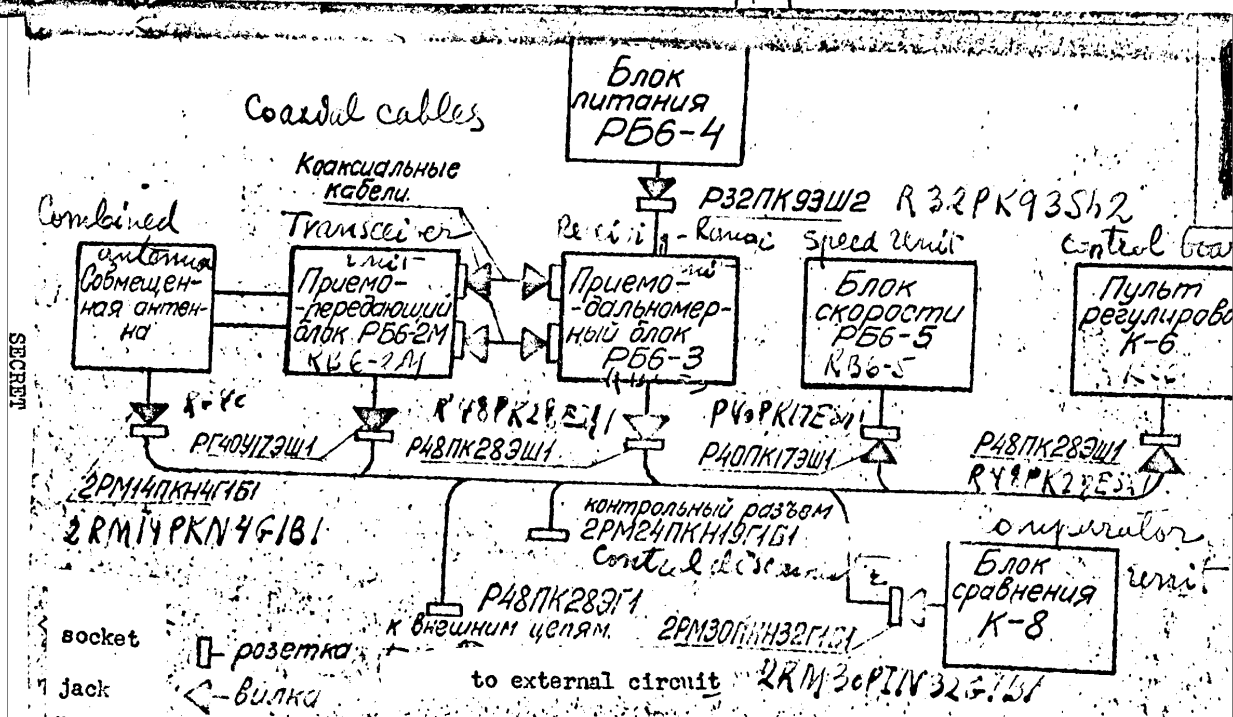 Блок
питания
РБ6-4
Coaxial cables
Коаксиальные
кабели.
Р32ПК9ЭШ2 R32PK93Sh2
Combined
antenna
Совмещен-
ная антен-
на
Transceiver
unit
Приемо-
-передающий
блок РБ6-2М
RB6-2M
Приемо-
-дальномер-
ный блок
РБ6-3
Speed Unit
Блок
скорости
РБ6-5
RB6-5
Control boa
Пульт
регулирово
К-6
SECRET
РГ40У17ЭШ1
R48PK28ESh1
Р48ПК28ЭШ1
P40PK17ESh1
Р40ПК17ЭШ1
Р48ПК28ЭШ1
R48PK28ESh1
2РМ14ПКН4Г1Б1
2RM14PKN4G1B1
контрольный разъем
2РМ24ПКН19Г1Б1
Control
Блок
сравнения
К-8
unit
Р48ПК28ЭГ1
к внешним цепям.
to external circuit
2РМ30ПКН32Г1Б1
2RM30PIN32G1B1
socket
-розетка
jack
-вилка